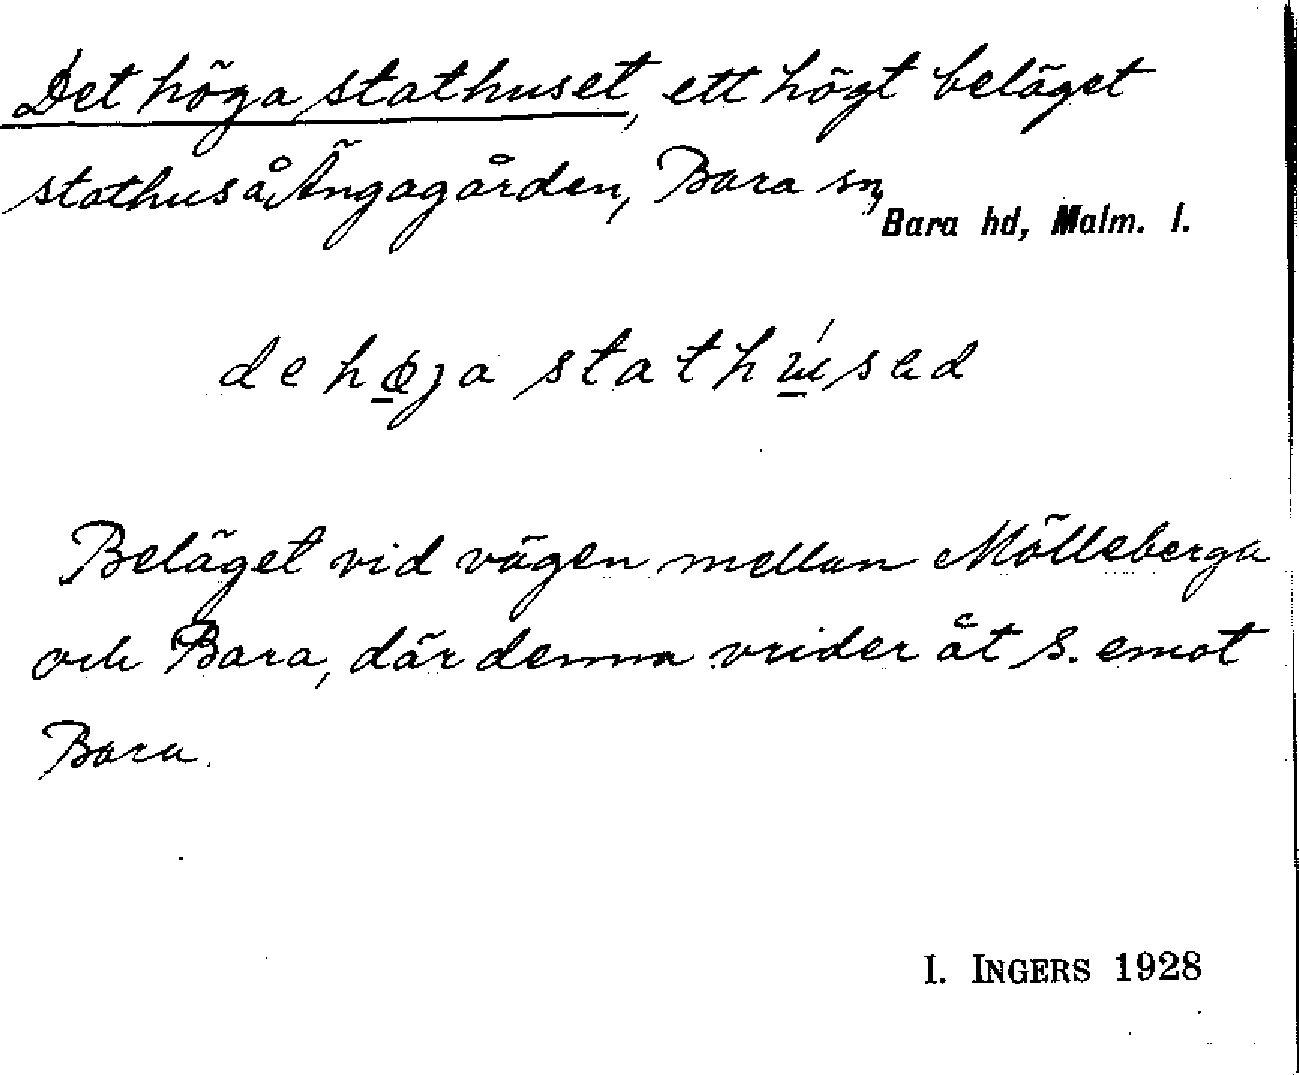 Det höga stathuset, ett högt beläget
stathus å Ängagården, Bara sn,
Bara hd, Malm. l.
de hø̱ja stathú̱sed
Beläget vid vägen mellan Mölleberga
och Bara, där denna vrider åt S. emot
Bara.
I. INGERS 1928